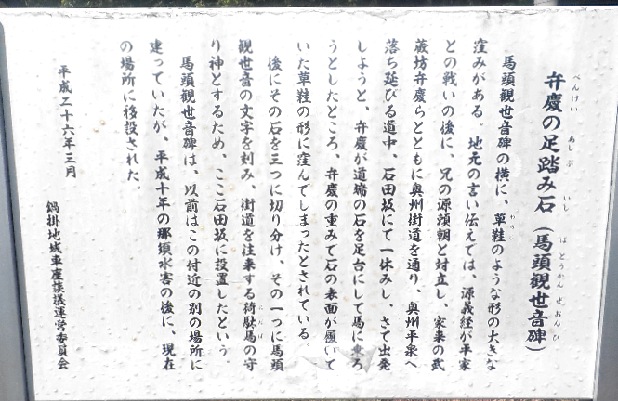 弁慶の足踏み石(馬頭観世音碑)
べんけい あしぶ いし ばとうかんぜおんひ
馬頭観世音碑の横に、草鞋のような形の大きな
わらじ
窪みがある。地元の言い伝えでは、源義経が平家
との戦いの後に、兄の源頼朝と対立し、家来の武
蔵坊弁慶らとともに奥州街道を通り、奥州平泉へ
落ち延びる道中、石田坂にて一休みし、さて出発
しようと、弁慶が道端の石を足台にして馬に乗ろ
うとしたところ、弁慶の重みで石の表面が履いて
いた草鞋の形に窪んでしまったとされている。
後にその石を三つに切り分け、その一つに馬頭
観世音の文字を刻み、街道を往来する荷駄馬の守
にだば
り神とするため、ここ石田坂に設置したという。
馬頭観世音碑は、以前はこの付近の別の場所に
建っていたが、平成十年の那須水害の後に、現在
の場所に移設された。
平成二十六年三月
鍋掛地域車座談議運営委員会